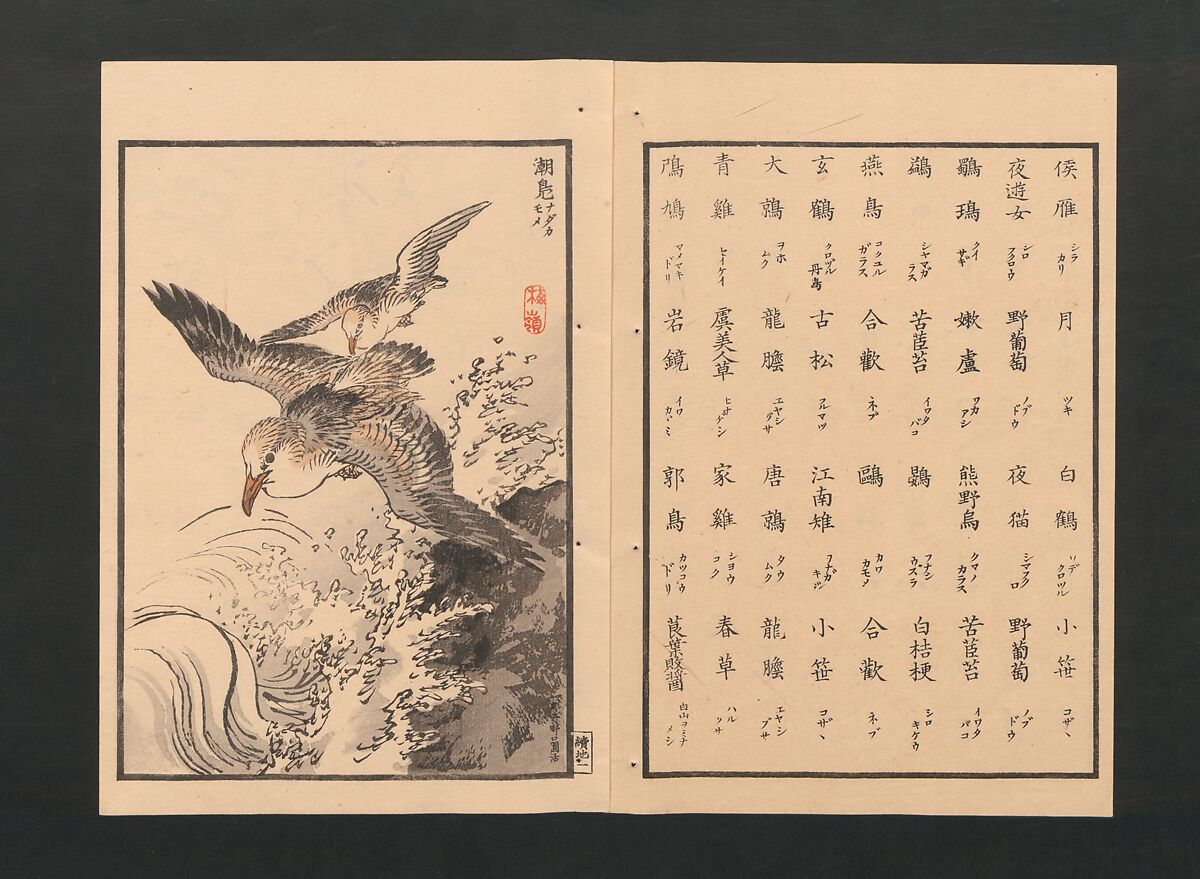 侯雁 シラカリ 月 ツキ 白鶴 ソデクロツル 小笹 コザヽ
夜遊女 シロフクロウ 野葡萄 ノブドウ 夜猫 シマフクロ 野葡萄 ノブドウ
鷭鳿 クイサギ 嫩蘆 ワカアシ 熊野烏 クマノカラス 苦苣苔 イワタバコ
鷁 シヤマガラス 苦苣苔 イワタバコ 鷃 フナシウズラ 白桔梗 シロキケウ
燕烏 コクエルガラス 合歡 ネブ 鷗 カワカモメ 合歡 ネブ
玄鶴 クロヅル 丹鳥 古松 フルマツ 江南雉 ヲナガキジ 小笹 コザヽ
大鶉 ヲホムク 龍膽 エヤシグサ 唐鶉 タウムク 龍膽 エヤシブサ
青雞 セイケイ 虞美人草 ヒナゲシ 家雞 シヨウコク 春草 ハルクサ
鳲鳩 マメマキドリ 岩鏡 イワカヾミ 郭鳥 カツコウドリ 莨葉敗醤 白山ヲミナメシ
潮鳧 ナダカモメ
楳嶺
續地一